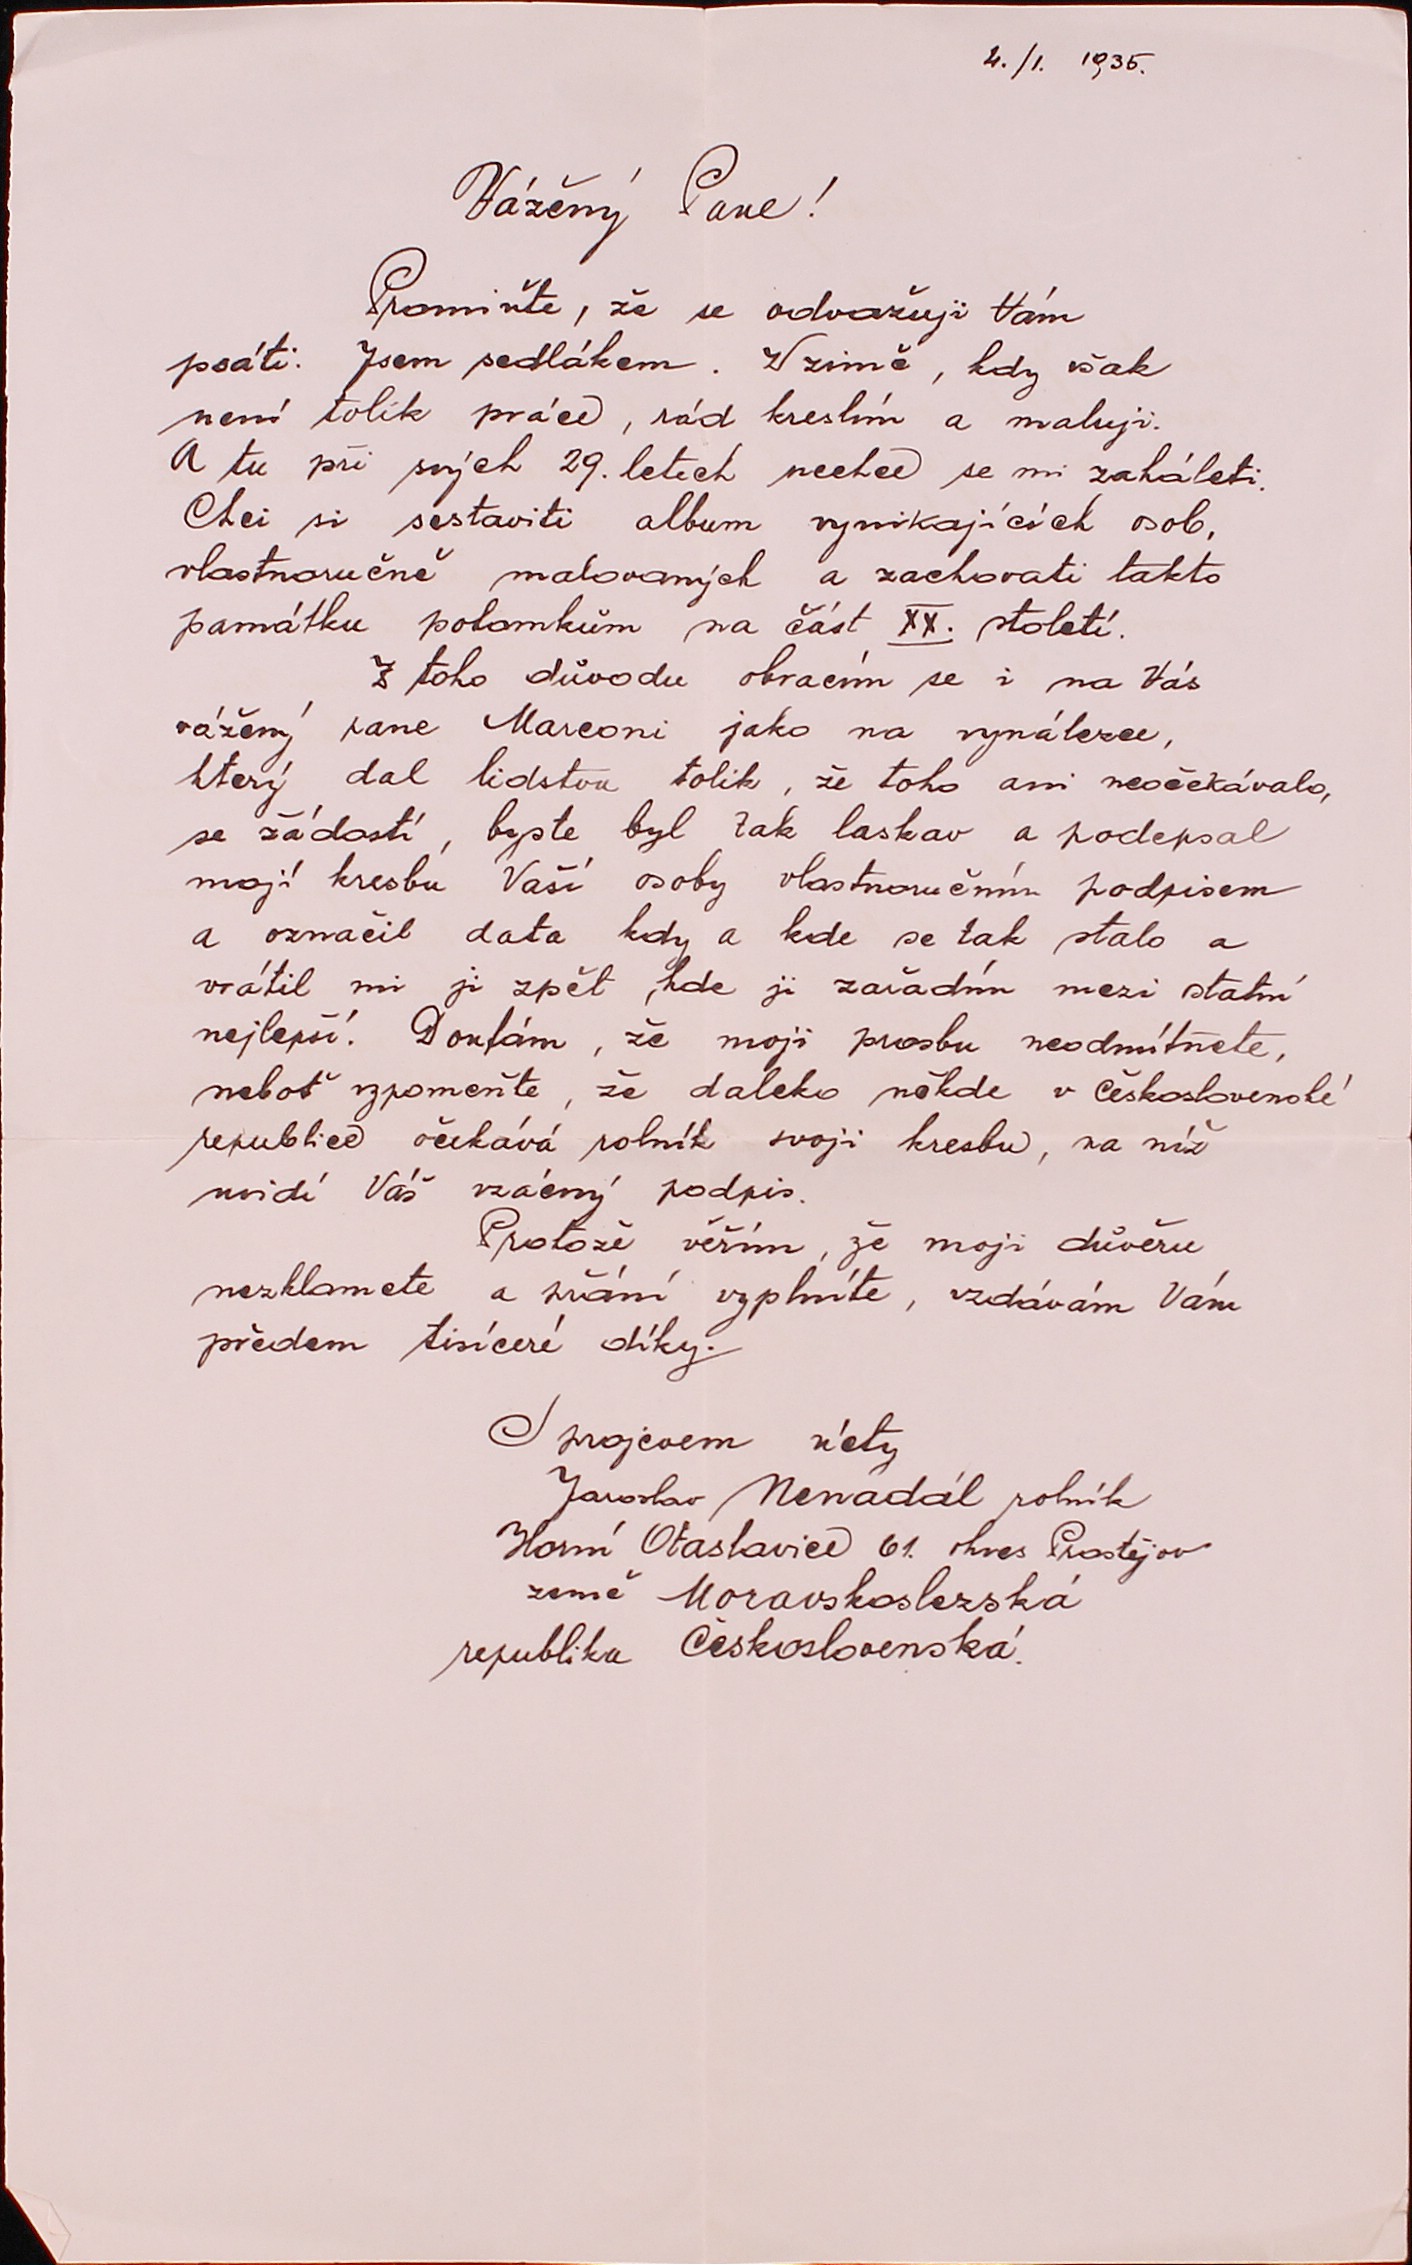 4./I. 1935.
Vážený Pane!
Promiňte, že se odvažuji Vám
psáti. Jsem sedlákem. V zimě, kdy však
není tolik práce, rád kreslím a maluji.
A tu při svých 29. letech nechce se mi zaháleti.
Chci si sestaviti album vynikajících osob,
vlastnoručně malovaných a zachovati takto
památku potomkům na část XX. století.
Z toho důvodu obracím se i na Vás
vážený pane Marconi jako na vynálezce,
který dal lidstvu tolik, že toho ani neočekávalo,
se žádostí, byste byl tak laskav a podepsal
mojí kresbu Vaší osoby vlastnoručním podpisem
a označil data kdy a kde se tak stalo a
vrátil mi ji zpět, kde ji zařadím mezi statní
nejlepší. Doufám, že moji prosbu neodmítnete,
neboť vzpomeňte, že daleko někde v Československé
republice očekává rolník svoji kresbu, na níž
uvidí Váš vzácný podpis.
Protože věřím, že moji důvěru
nezklamete a přání vyplníte, vzdávám Vám
předem tisíceré díky.
S projevem úcty
Jaroslav Nenadál rolník
Horní Otaslavice 61. okres Prostějov
země Moravskoslezská
republika Československá.